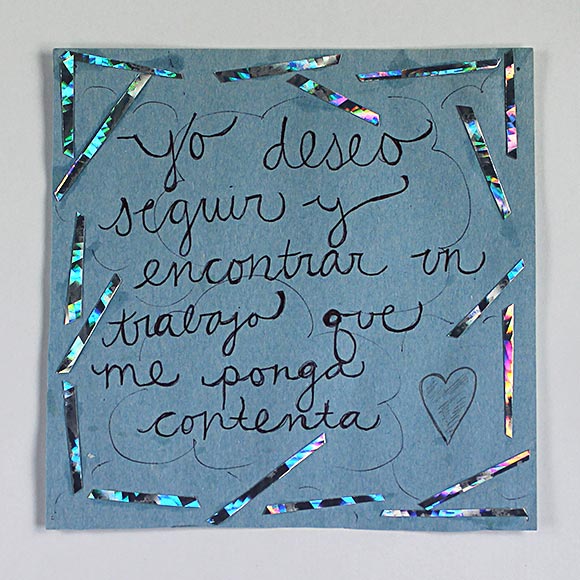 Yo deseo
seguir y
encontrar un
trabajo que
me ponga
contenta